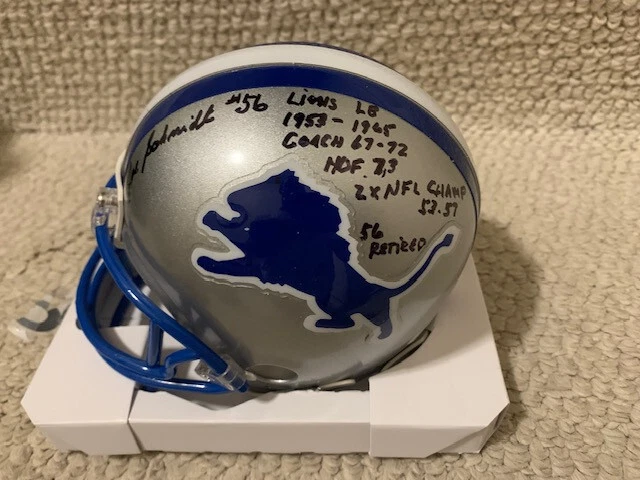 Joe Schmidt #56 Lions LB
1953-1965
COACH 67-72
HOF 73
2x NFL CHAMP
53.57
56
RETIRED